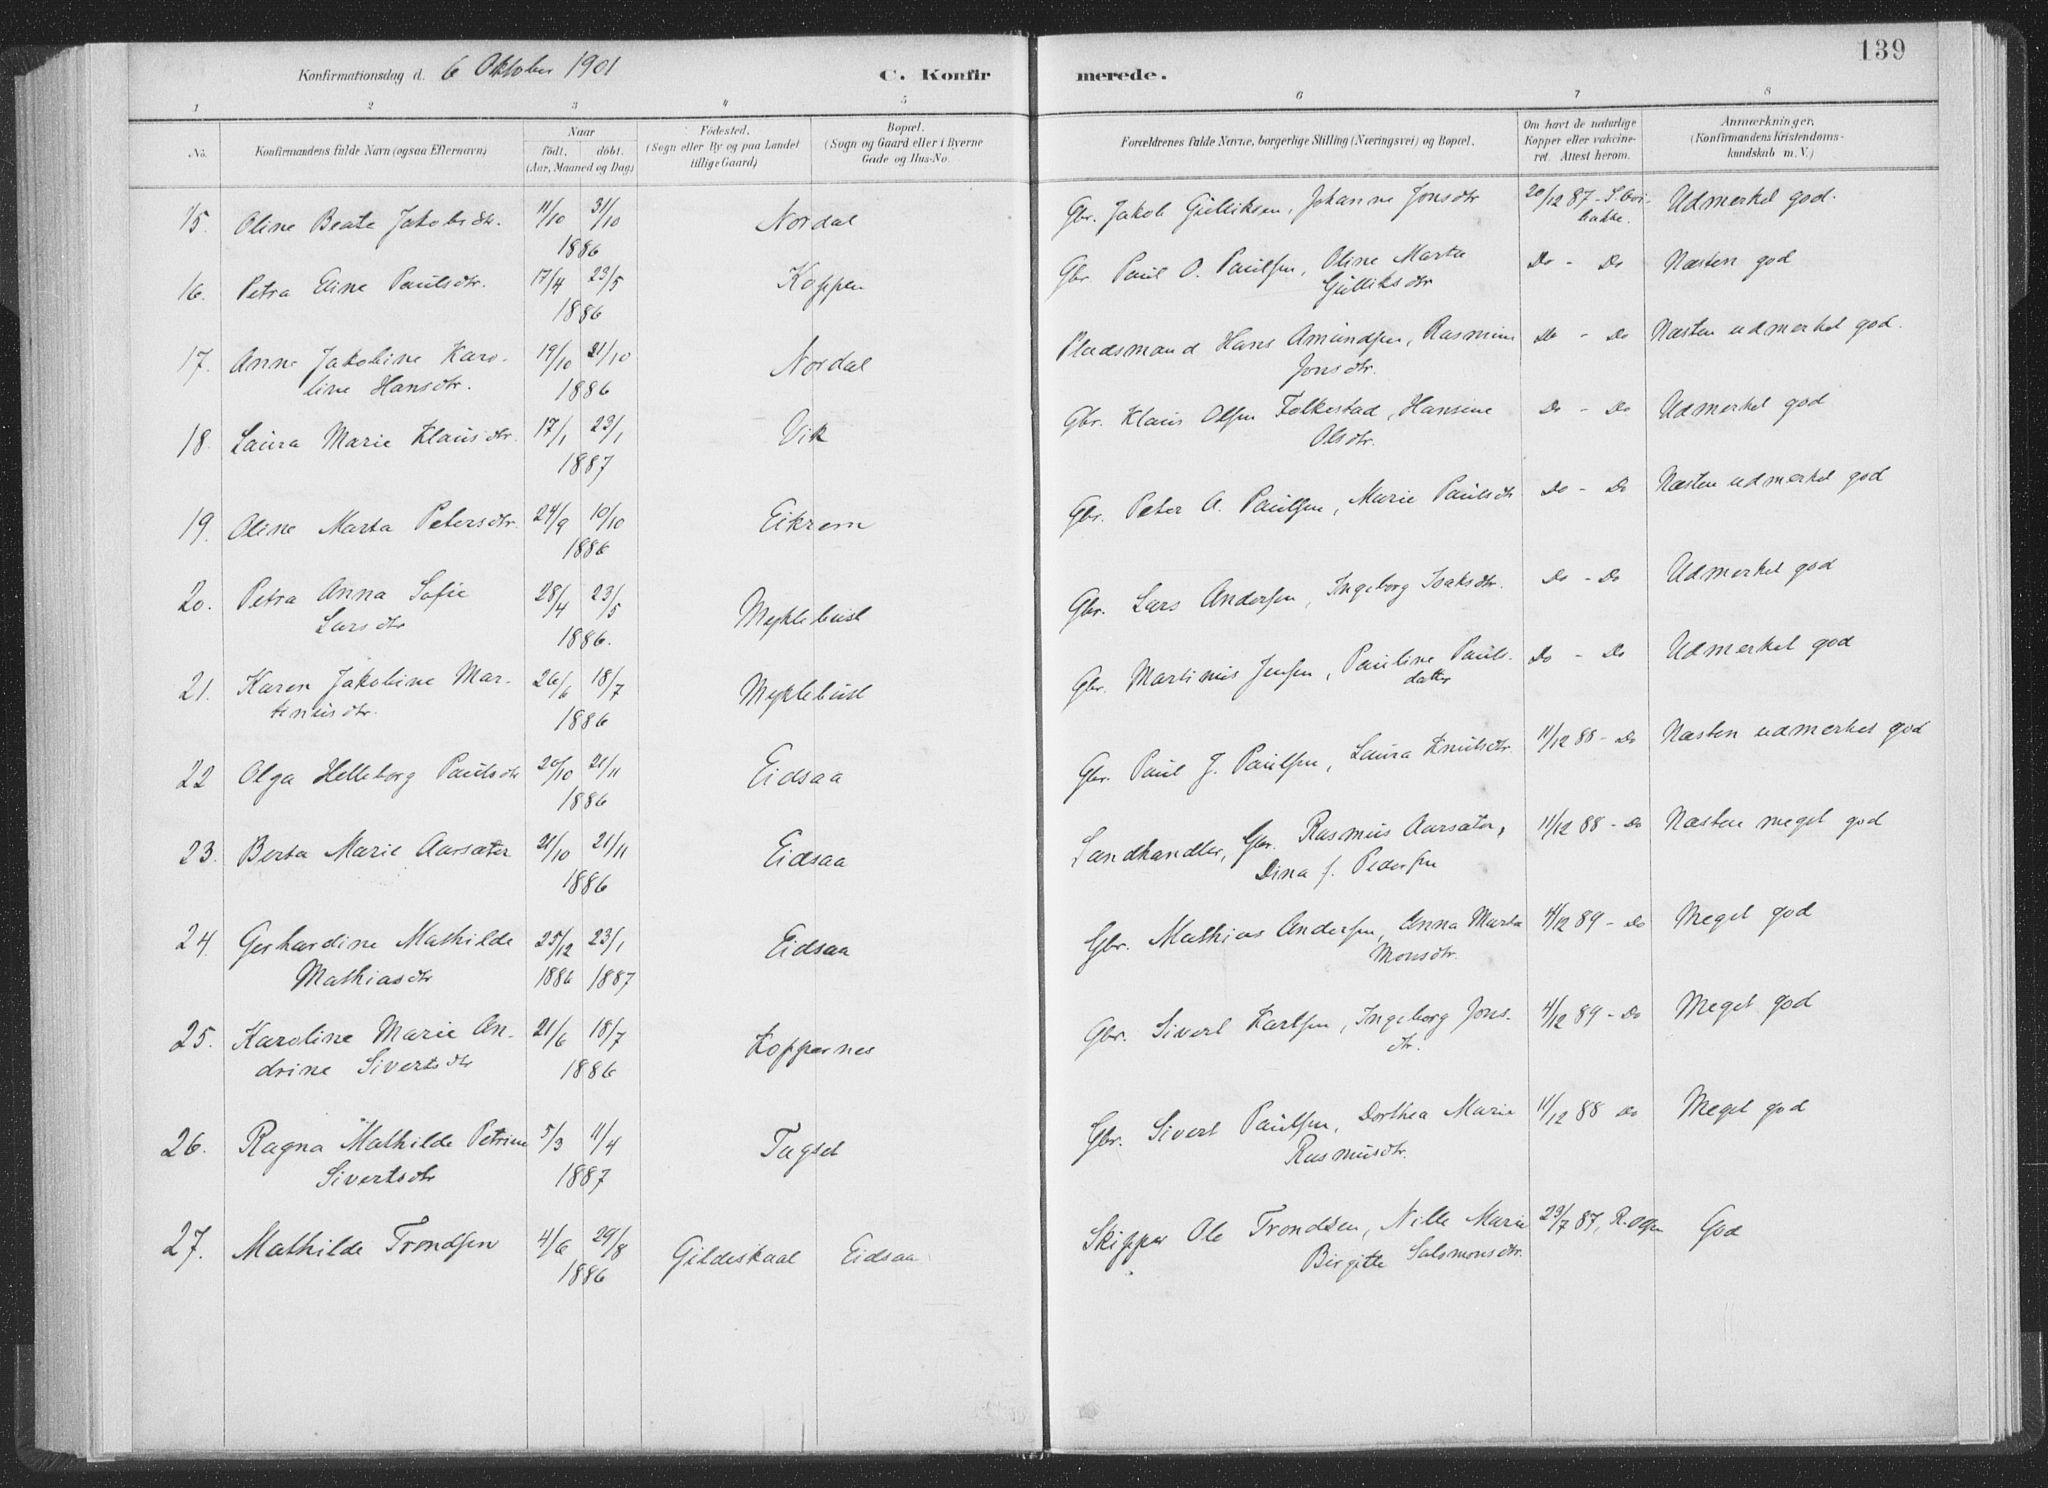 139
Konfirmationsdag d. 6 Oktober 1901 C. Konfirmerede.
1 2 3 4 5 6 7 8
No. Konfirmandens fulde Navn (ogsaa Efternavn) Naar født. døbt. (Aar, Maaned og Dag) Fødested. (Sogn eller By og paa Landet tillige Gaard) Bopæl. (Sogn og Gaard eller i Byerne Gade og Hus-No. Forældrenes fulde Navne, borgerlige Stilling (Næringsvei) og Bopæl. Om havt de naturlige Kopper eller vakcineret. Attest herom. Anmærkninger. (Konfirmandens Kristendomskundskab m. V.)
15. Oline Beate Jakobsdtr. 11/10 31/10 Nordal Gbr. Jakob Gulliksen, Johanne Jonsdtr 20/12 87 - Udmerket god.
1886
16. Petra Eline Paulsdtr. 17/4 23/5 Koppen Gbr. Paul O. Paulsen, Oline Marta Do - Do Næsten god
1886 Gulliksdtr
17. Anne Jakobine Karo- 19/10 21/10 Nordal Pladsmand Hans Amundsen, Rasmine Do - Do Næsten udmerket god.
line Hansdtr. 1886 Jonsdtr.
18. Laura Marie Klausdtr. 17/1 23/1 Vik Gbr. Klaus Olsen Folkestad, Hansine Do - Do Udmerket god
1887 Olsdtr.
19. Oline Marta Petersdtr. 24/9 10/10 Eikrem Gbr. Peter A. Paulsen, Marie Paulsdtr Do - Do Næsten udmerket god
1886
20. Petra Anna Sofie 28/4 23/5 Myklebust Gbr. Lars Andersen, Ingeborg Isaksdtr. Do - Do Udmerket god
Larsdtr 1886.
21. Karen Jakobine Mar- 26/6 18/7 Myklebust Gbr. Martinus Jensen, Pauline Pauls- Do - Do Udmerket god
tinusdtr. 1886 datter
22 Olga Helleborg Paulsdtr 20/10 21/11 Eidsaa Gbr. Paul J. Paulsen, Laura Knutsdtr. 11/12 88 - Do Næsten udmerket god
1886
23. Berta Marie Aarsæter 21/10 21/11 Eidsaa Landhandler, Gbr. Rasmus Aarsæter, 11/12 88 - Do Næsten meget god
1886 Dina f. Pedersen
24. Gerhardine Mathilde 25/12 23/1 Eidsaa Gbr. Mathias Andersen, Anna Marta 4/12 89 - Do Meget god
Mathiasdtr 1886 1887 Monsdtr.
25. Karoline Marie An- 21/6 18/7 Koppernes Gbr. Sivert Karlsen, Ingeborg Jons- 4/12 89 - Do Meget god
drine Sivertsdtr 1886 dtr.
26. Ragna Mathilde Petrine 5/3 11/4 Tagset Gbr. Sivert Paulsen, Dorthea Marie 11/12 88 Do Meget god
Sivertsdtr 1887 Rasmusdtr.
27. Mathilde Trondsen 4/6 29/8 Gildeskaal Eidsaa Skipper Ole Trondsen, Nille Marie 29/7 87, God
1886 Birgitte Salomonsdtr.